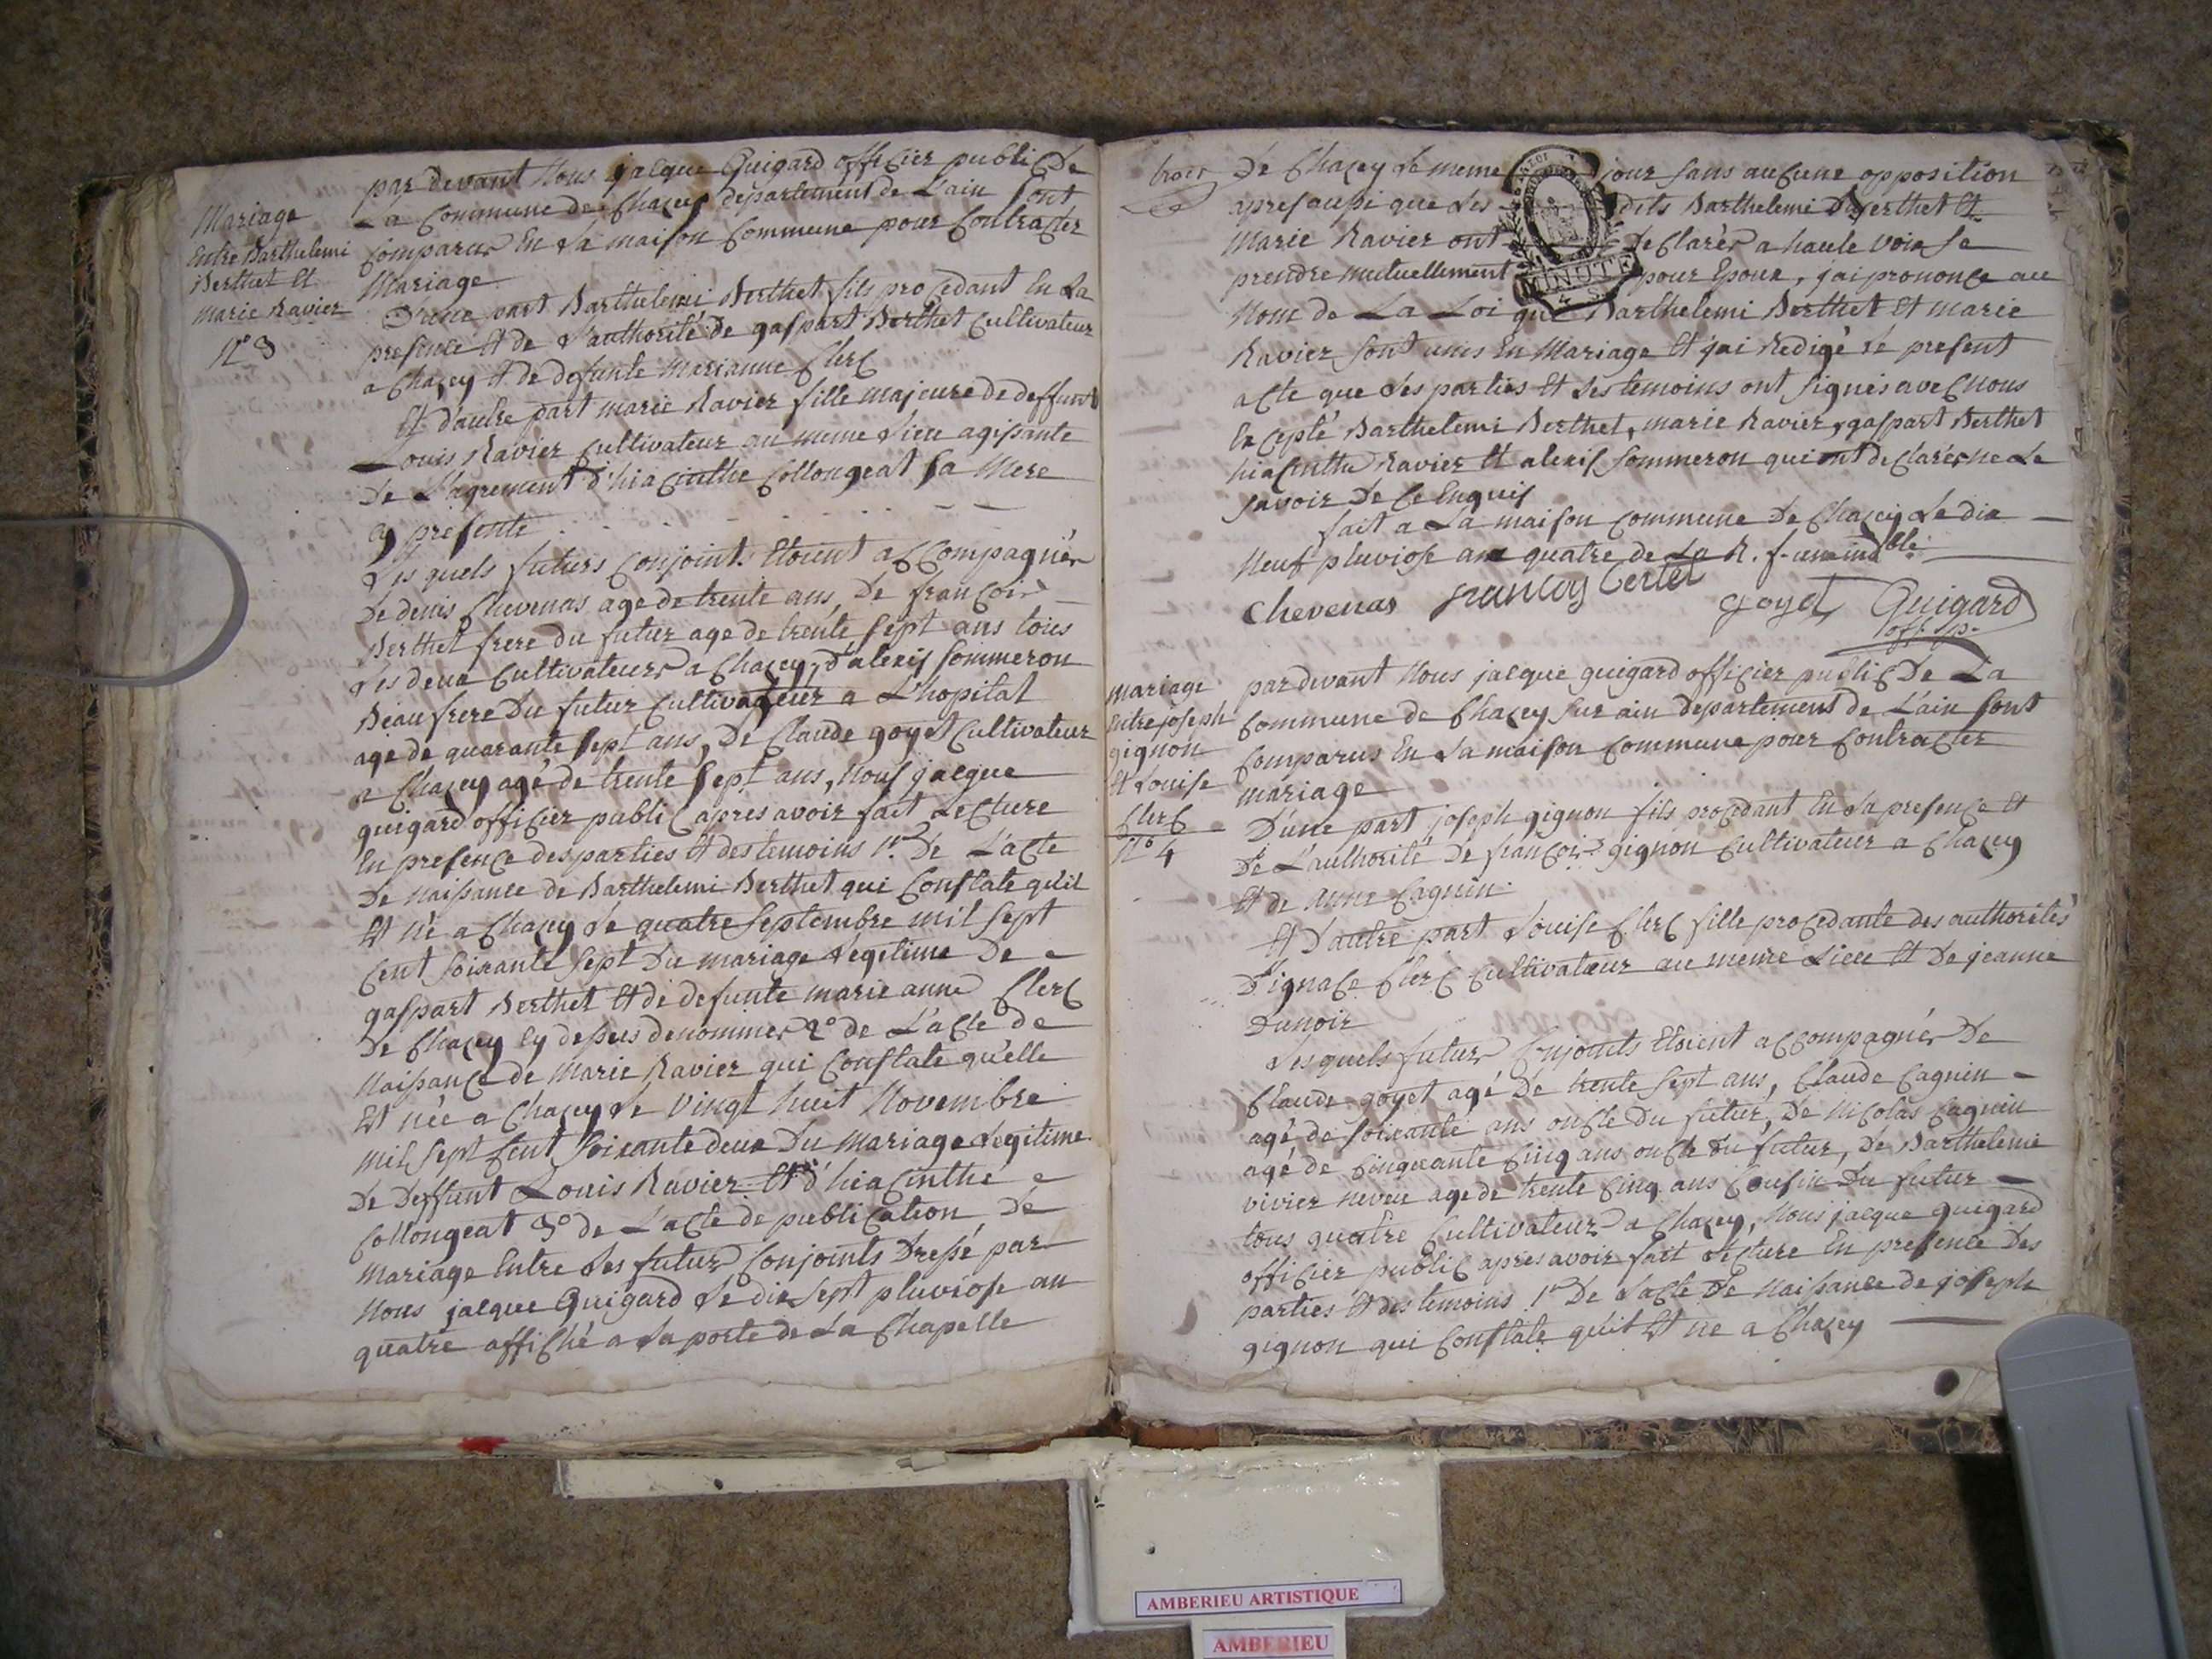 Mariage
Entre Barthelemi
Berthet Et
Marie Ravier
N° 3
par devant Nous jacque Guigard officier public de
La Commune de Chazey departement de L'ain Sont
Comparus En La maison Commune pour Contracter
Mariage
D'une part Barthelemi Berthet fils procedant En La
presence Et de L'authorité de gaspart Berthet Cultivateur
a Chazey Et de defunte Marianne Clerc
Et d'autre part marie Ravier fille majeure de deffunt
Louis Ravier Cultivateur au meme Lieu agissante
De L'agrement d'hiacinthe Collongeat Sa Mere
Cy presente
Les quels futurs Conjoints Etoient accompagnés
De denis Chevenas age de trente ans, De francois
Berthet frere du futur age de trente Sept ans tous
Les deux Cultivateurs a Chazey, d'alexis Sommeron
Beau frere Du futur Cultivateur a L'hopital
agé de quarante Sept ans, De Claude goyet Cultivateur
a Chazey agé de trente Sept ans, Nous jacque
guigard officier public apres avoir fait Lecture
En presence des parties Et des temoins 1° De L'acte
De Naissance de Barthelemi Berthet qui Constate qu'il
Et né a Chazey Le quatre Septembre mil Sept
Cent Soixante Sept Du mariage Legitime De
gaspart Berthet Et de defunte marie anne Clerc
De Chazey Cy dessus denommés 2° de L'acte de
Naissance de Marie Ravier qui Constate qu'elle
Et née a Chazey Le Vingt huit Novembre
Mil Sept Cent Soixante deux Du Mariage Legitime
De Deffunt Louis Ravier Et d'hiacinthe
Collongeat 3° de L'acte de publication De
Mariage Entre Les futurs Conjoints Dressé par
Nous jacque Guigard Le dix Sept pluviose an
quatre affiché a La porte de La Chapelle
trois
De Chazey Le meme jour Sans aucune opposition
apres aussi que Les dits Barthelemi Berthet Et
Marie Ravier ont Declarés a haute Voix Se
prendre mutuellement pour Epoux, j'ai prononce au
Nom de La Loi que Barthelemi Berthet Et marie
Ravier Sont unis En Mariage Et j'ai Redigé Le present
acte que Les parties Et Les temoins ont Signés avec Nous
Excepté Barthelemi Berthet, marie Ravier, gaspart Berthet
hiacinthe Ravier Et alexis Sommeron qui ont declarés ne Le
Savoir De Ce Enquis
fait a La maison Commune De Chazey Le dix
Neuf pluviose an quatre de La R. f. une ind.ble
MINUTE
4 S
Chevenas francoy Bertet goyet Guigard
off. p.
Mariage
Entre joseph
gignon
Et Louise
Clerc
N° 4
par devant Nous jacque guigard officier public De La
Commune de Chazey Sur ain departement de L'ain Sont
Comparus En La maison Commune pour Contracter
mariage
D'une part joseph gignon fils procedant En La presence Et
De L'authorité De francois gignon Cultivateur a Chazey
Et de anne Cagnin
Et D'autre part Louise Clerc fille procedante des authorités
D'ignace Clerc Cultivateur au meme Lieu Et De jeanne
Dunoir
Les quels futurs Conjoints Etoient accompagnés De
Claude goyet agé De trente Sept ans, Claude Cagnin
agé de Soixante ans oncle Du futur, De Nicolas Cagnin
agé de Cinquante Cinq ans oncle Du futur, De Barthelemi
vivier Neveu age de trente Cinq ans Cousin Du futur
tous quatre Cultivateurs a Chazey, Nous jacque guigard
officier public apres avoir fait Lecture En presence Des
parties Et des temoins 1° De L'acte De Naissance de joseph
gignon qui Constate qu'il Et né a Chazey
AMBERIEU ARTISTIQUE
AMBERIEU